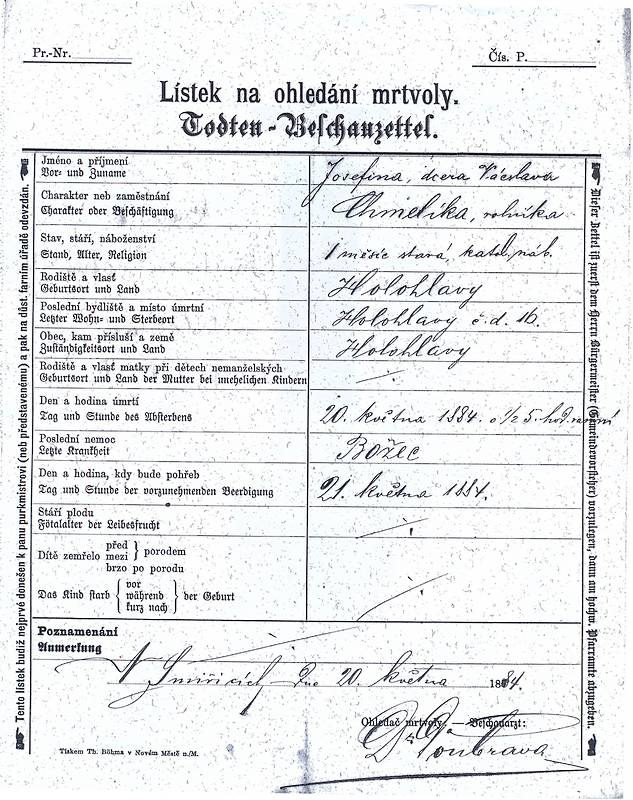 Pr.-Nr.
Čís. P.
Lístek na ohledání mrtvoly.
Todten-Beschauzettel.
Tento lístek budiž nejprvé donešen k panu purkmistrovi (neb představenému) a pak na důst. farním úřadě odevzdán.
Jméno a příjmení
Vor- und Zuname
Josefina, dcera Václava
Charakter neb zaměstnání
Charakter oder Beschäftigung
Chmelíka, rolníka
Stav, stáří, náboženství
Stand, Alter, Religion
1 měsíc stará, katol. náb.
Rodiště a vlasť
Geburtsort und Land
Holohlavy
Poslední bydliště a místo úmrtní
Letzter Wohn- und Sterbeort
Holohlavy č. d. 16.
Obec, kam přísluší a země
Zuständigkeitsort und Land
Holohlavy
Rodiště a vlasť matky při dětech nemanželských
Geburtsort und Land der Mutter bei unehelichen Kindern
Den a hodina úmrtí
Tag und Stunde des Absterbens
20. května 1884. o 1/2 5. hod. ranní
Poslední nemoc
Letzte Krankheit
Božec
Den a hodina, kdy bude pohřeb
Tag und Stunde der vorzunehmenden Beerdigung
21. května 1884.
Stáří plodu
Fötalalter der Leibesfrucht
Dítě zemřelo před mezi brzo po porodem porodu
Das Kind starb vor während kurz nach der Geburt
Poznamenání
Anmerkung
V Smiřicích dne 20. května 1884.
Ohledač mrtvoly: — Beschauarzt:
Dr Doubrava
Tiskem Th. Böhma v Novém Městě n./M.
Dieser Zettel ist zuerst dem Herrn Bürgermeister (Gemeindevorsteher) vorzulegen, dann am hochw. Pfarramte abzugeben.